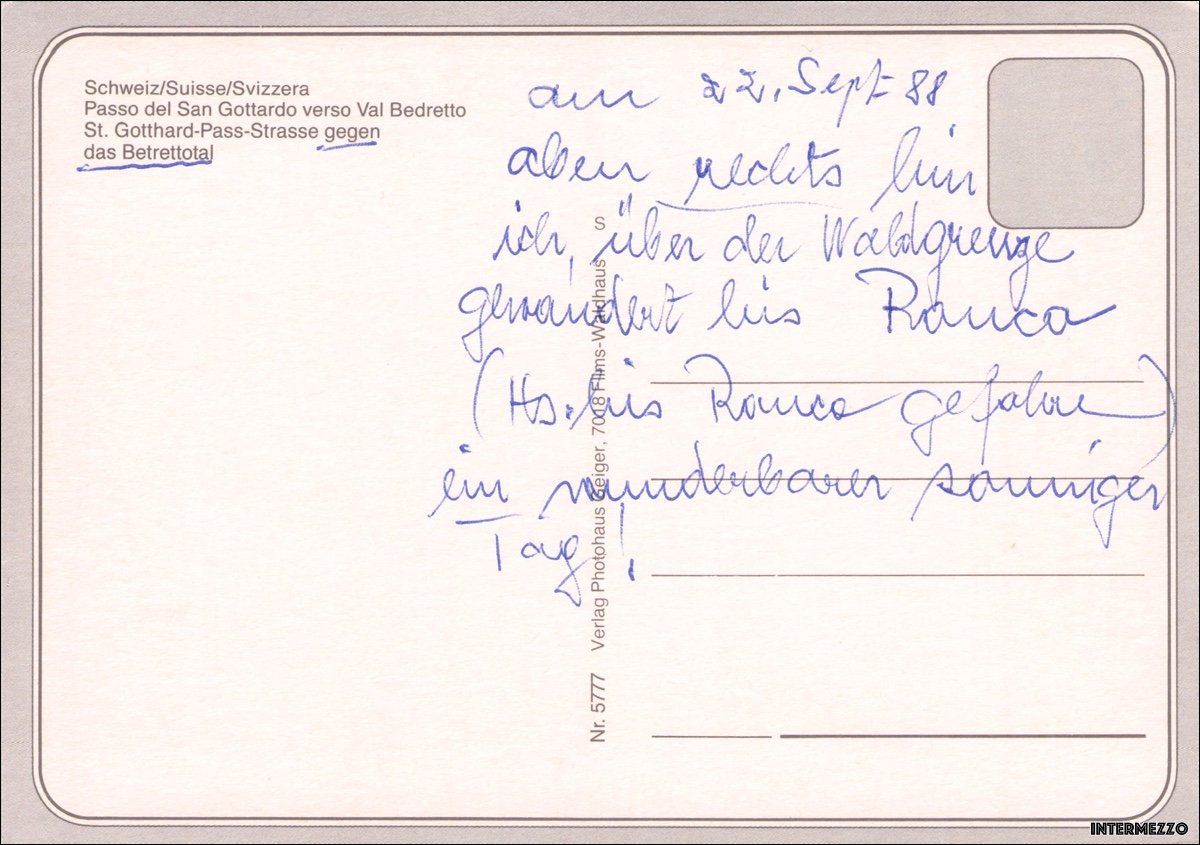 Schweiz/Suisse/Svizzera
Passo del San Gottardo verso Val Bedretto
St. Gotthard-Pass-Strasse gegen
das Betrettotal
am 22. Sept 88
oben rechts bin
ich über der Waldgrenze
gewandert bis Ronco
(Hs. bis Ronco gefahren)
ein wunderbarer sonniger
Tag!
Nr. 5777 Verlag Photohaus Geiger, 7018 Flims-Waldhaus S
INTERMEZZO